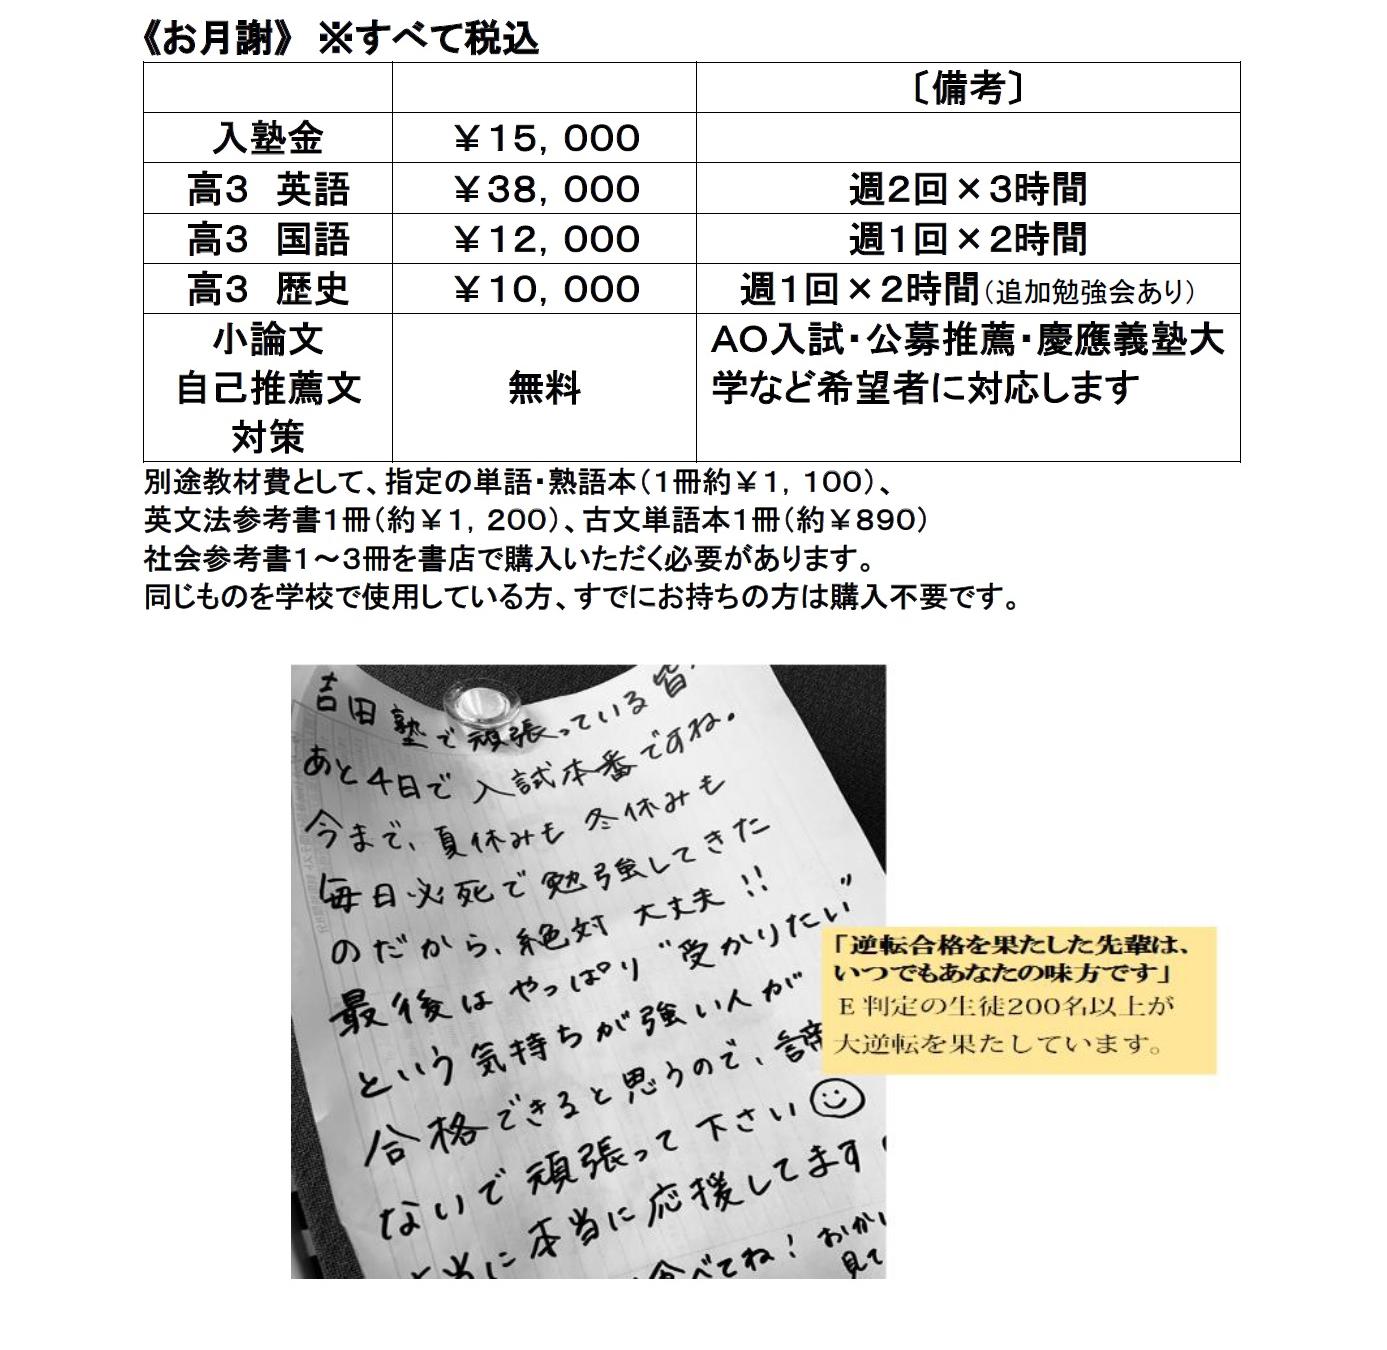 《お月謝》 ※すべて税込
〔備考〕
入塾金 ￥15，000
高3 英語 ￥38，000 週2回×3時間
高3 国語 ￥12，000 週1回×2時間
高3 歴史 ￥10，000 週1回×2時間（追加勉強会あり）
小論文
自己推薦文
対策
無料
AO入試・公募推薦・慶應義塾大
学など希望者に対応します
別途教材費として、指定の単語・熟語本（1冊約￥1，100）、
英文法参考書1冊（約￥1，200）、古文単語本1冊（約￥890）
社会参考書1～3冊を書店で購入いただく必要があります。
同じものを学校で使用している方、すでにお持ちの方は購入不要です。
吉田塾で頑張っている皆
あと4日で入試本番ですね。
今まで、夏休みも冬休みも
毎日必死で勉強してきた
のだから、絶対大丈夫!!
最後はやっぱり"受かりたい"
という気持ちが強い人が
合格できると思うので、諦
ないで頑張って下さい
本当に応援してます
食べてね！
おかし
見て
「逆転合格を果たした先輩は、
いつでもあなたの味方です」
E判定の生徒200名以上が
大逆転を果たしています。